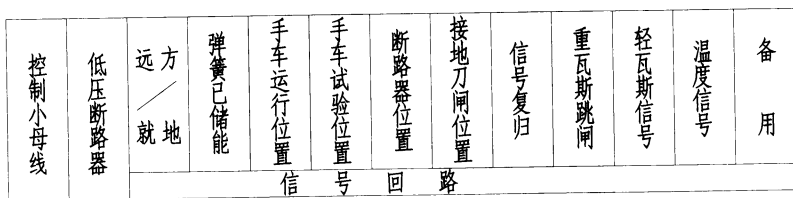 控制小母线
低压断路器
远方/就地
弹簧已储能
手车运行位置
手车试验位置
断路器位置
接地刀闸位置
信号复归
重瓦斯跳闸
轻瓦斯信号
温度信号
备用
信号回路